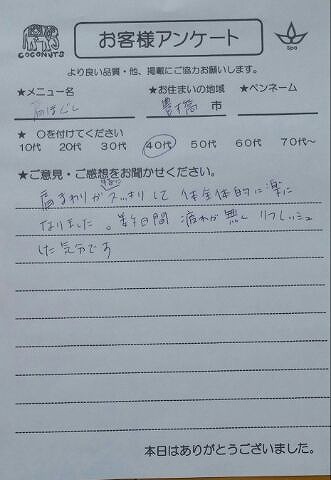 COCONUTS
お客様アンケート
spa
より良い品質・他、掲載にご協力お願いします。
★メニュー名 ★お住まいの地域 ★ペンネーム
肩ほぐし 豊橋 市
★ ○を付けてください
10代 20代 30代 40代 50代 60代 70代〜
★ご意見・ご感想をお聞かせください。
肩まわりがスッキリして 体全体的に楽に
なりました。 数日間 疲れが無く リフレッシュ
した気分です
本日はありがとうございました。